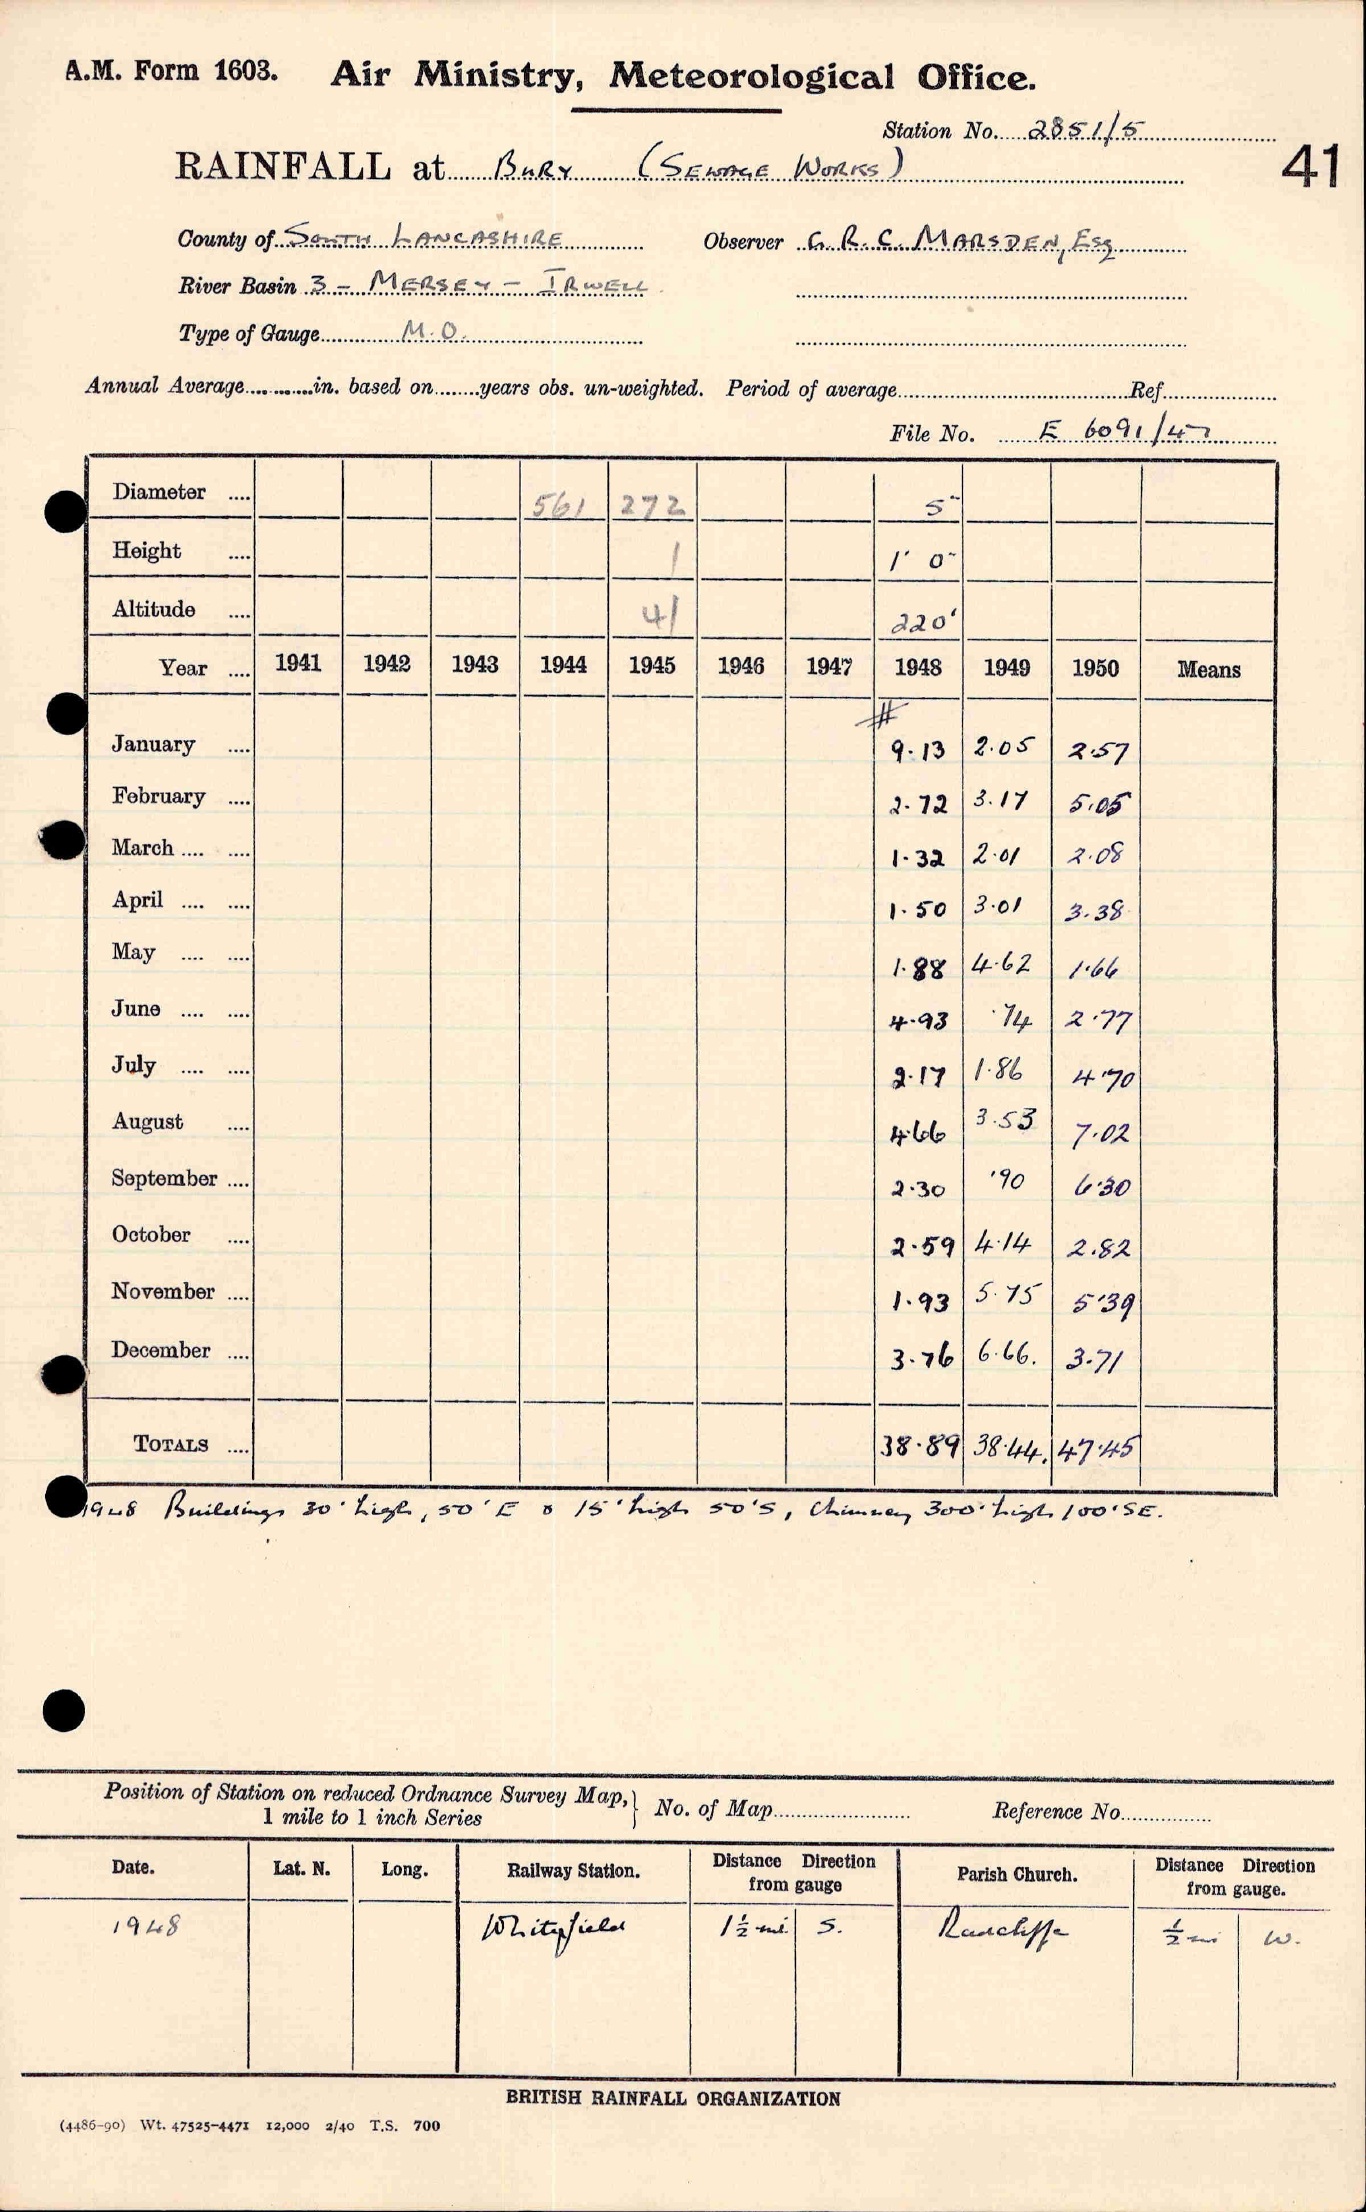 A.M. Form 1603. Air Ministry, Meteorological Office.
Station No. 2851/5
41
RAINFALL at Bury (Sewage Works)
County of South Lancashire Observer G. R. C. Marsden, Esq
River Basin 3 - Mersey - Irwell
Type of Gauge M.O.
Annual Average............in. based on........years obs. un-weighted. Period of average............Ref............
File No. E 6091/47
Diameter .... 561 272 5"
Height .... 1 1' 0"
Altitude .... 41 220'
Year .... 1941 1942 1943 1944 1945 1946 1947 1948 1949 1950 Means
#
January .... 9.13 2.05 2.57
February .... 2.72 3.17 5.05
March .... .... 1.32 2.01 2.08
April .... .... 1.50 3.01 3.38
May .... .... 1.88 4.62 1.66
June .... .... 4.93 .74 2.77
July .... .... 2.17 1.86 4.70
August .... 4.66 3.53 7.02
September .... 2.30 .90 6.30
October .... 2.59 4.14 2.82
November .... 1.93 5.75 5.39
December .... 3.76 6.66. 3.71
TOTALS .... 38.89 38.44. 47.45
1948 Buildings 30' high, 50' E & 15' high 50' S, Chimney 300' high 100' SE.
Position of Station on reduced Ordnance Survey Map,} No. of Map............ Reference No............
1 mile to 1 inch Series
Date. Lat. N. Long. Railway Station. Distance Direction from gauge Parish Church. Distance Direction from gauge.
1948 Whitefield 1½ mi. S. Radcliffe ½ mi W.
BRITISH RAINFALL ORGANIZATION
(4486-90) Wt. 47525-4471 12,000 2/40 T.S. 700